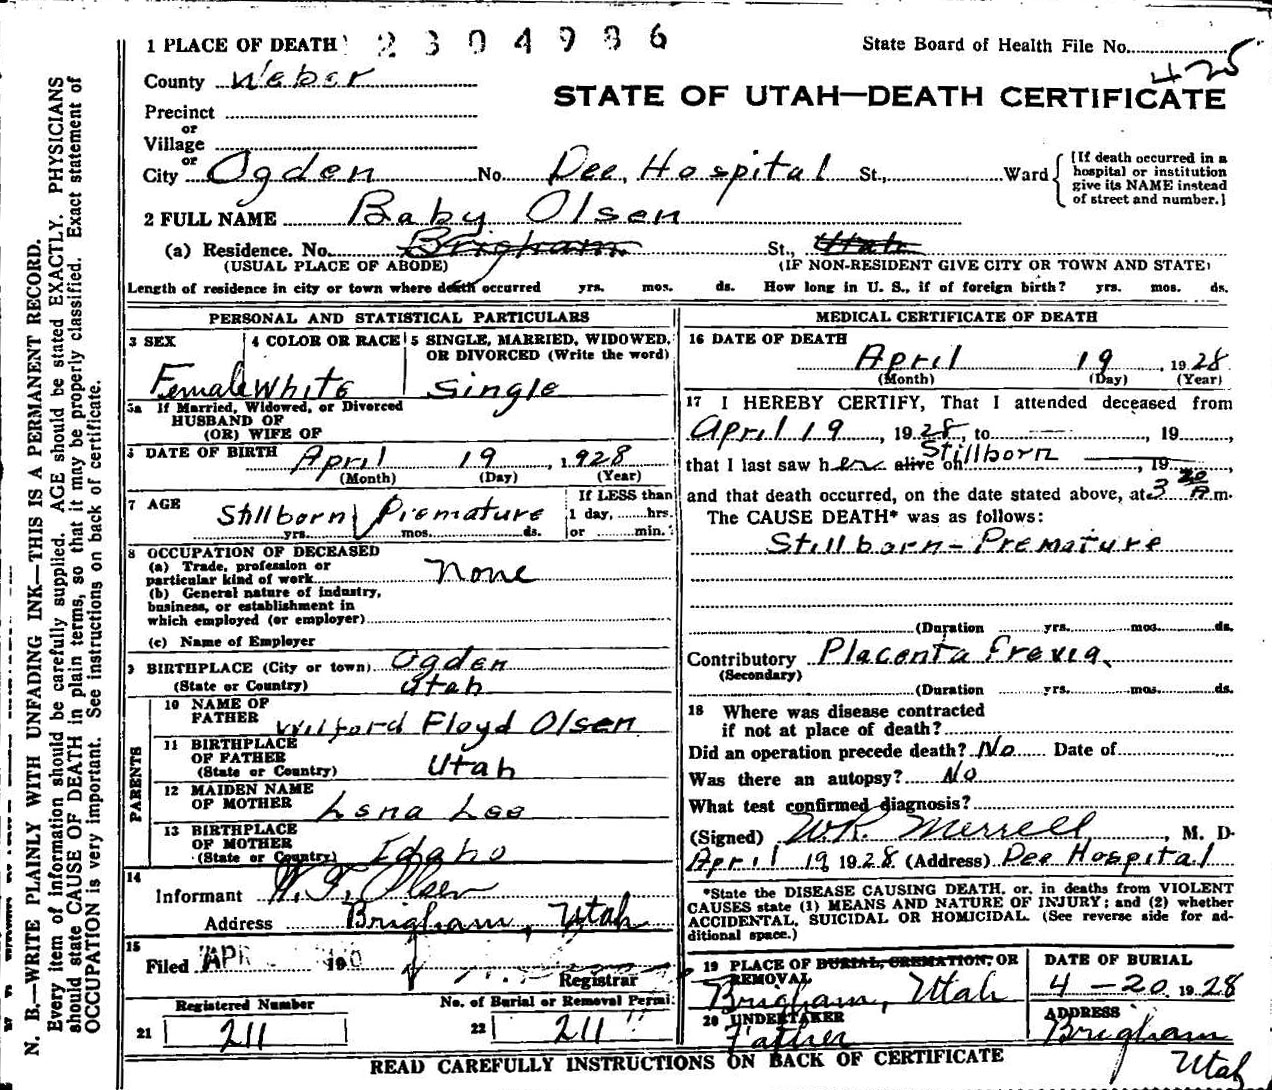 1 PLACE OF DEATH 2304986 State Board of Health File No. 425
County Weber
STATE OF UTAH—DEATH CERTIFICATE
Precinct
or
Village
or
City Ogden No. Dee, Hospital St., Ward
[If death occurred in a
hospital or institution
give its NAME instead
of street and number.]
2 FULL NAME Baby Olsen
(a) Residence. No. Brigham St., Utah
(USUAL PLACE OF ABODE) (IF NON-RESIDENT GIVE CITY OR TOWN AND STATE)
Length of residence in city or town where death occurred yrs. mos. ds. How long in U. S., if of foreign birth? yrs. mos. ds.
PERSONAL AND STATISTICAL PARTICULARS
3 SEX 4 COLOR OR RACE 5 SINGLE, MARRIED, WIDOWED,
OR DIVORCED (Write the word)
Female White Single
5a If Married, Widowed, or Divorced
HUSBAND OF
(OR) WIFE OF
DATE OF BIRTH April 19, 1928
(Month) (Day) (Year)
7 AGE Stillborn Premature
yrs. mos. ds.
If LESS than
1 day, hrs.
or min.
8 OCCUPATION OF DECEASED
(a) Trade, profession or
particular kind of work None
(b) General nature of industry,
business, or establishment in
which employed (or employer)
(c) Name of Employer
9 BIRTHPLACE (City or town) Ogden
(State or Country) Utah
PARENTS
10 NAME OF
FATHER Wilford Floyd Olsen
11 BIRTHPLACE
OF FATHER
(State or Country) Utah
12 MAIDEN NAME
OF MOTHER Lena Lee
13 BIRTHPLACE
OF MOTHER
(State or Country) Idaho
14
Informant W. F. Olsen
Address Brigham, Utah
15
Filed APR 19
Registrar
Registered Number No. of Burial or Removal Permit
21 211 22 211
MEDICAL CERTIFICATE OF DEATH
16 DATE OF DEATH
April 19 1928
(Month) (Day) (Year)
17 I HEREBY CERTIFY, That I attended deceased from
April 19, 1928, to , 19 ,
that I last saw her alive on Stillborn , 19 ,
and that death occurred, on the date stated above, at 3 20 A m.
The CAUSE DEATH* was as follows:
Stillborn - Premature
(Duration yrs. mos. ds.
Contributory Placenta Previa
(Secondary)
(Duration yrs. mos. ds.
18 Where was disease contracted
if not at place of death?
Did an operation precede death? No Date of
Was there an autopsy? No
What test confirmed diagnosis?
(Signed) W.R. Merrell, M. D.
April 19 1928 (Address) Dee Hospital
*State the DISEASE CAUSING DEATH, or, in deaths from VIOLENT
CAUSES state (1) MEANS AND NATURE OF INJURY; and (2) whether
ACCIDENTAL, SUICIDAL OR HOMICIDAL. (See reverse side for ad-
ditional space.)
19 PLACE OF BURIAL, CREMATION, OR
REMOVAL
Brigham, Utah
DATE OF BURIAL
4 - 20 1928
20 UNDERTAKER
Father
ADDRESS
Brigham
Utah
READ CAREFULLY INSTRUCTIONS ON BACK OF CERTIFICATE
N. B.—WRITE PLAINLY WITH UNFADING INK—THIS IS A PERMANENT RECORD.
Every item of information should be carefully supplied. AGE should be stated EXACTLY. PHYSICIANS
should state CAUSE OF DEATH in plain terms, so that it may be properly classified. Exact statement of
OCCUPATION is very important. See instructions on back of certificate.